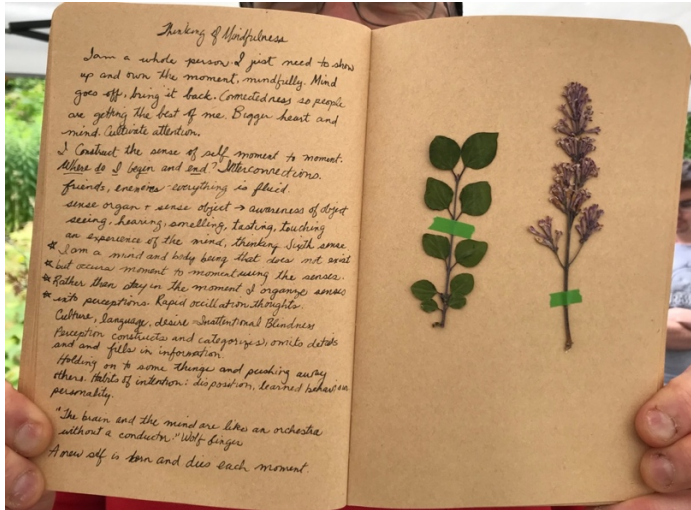 Thinking of Mindfulness
I am a whole person. I just need to show
up and own the moment, mindfully. Mind
goes off, bring it back. Connectedness so people
are getting the best of me. Bigger heart and
mind. Cultivate attention.
I Construct the sense of self moment to moment.
Where do I begin and end? Interconnections.
friends, enemies - everything is fluid.
sense organ + sense object → awareness of object
seeing, hearing, smelling, tasting, touching
an experience of the mind, thinking Sixth sense
* I am a mind and body being that does not exist
* but occurs moment to moment using the senses.
* Rather than stay in the moment I organize senses
* into perceptions. Rapid occillation thoughts.
Culture, language, desire = Inattentional Blindness
Perception constructs and categorizes, omits details
and and fills in information.
Holding on to some things and pushing away
others. Habits of intention: disposition, learned behaviors
personality.
"The brain and the mind are like an orchestra
without a conductor." Wolf Singer
A new self is born and dies each moment.